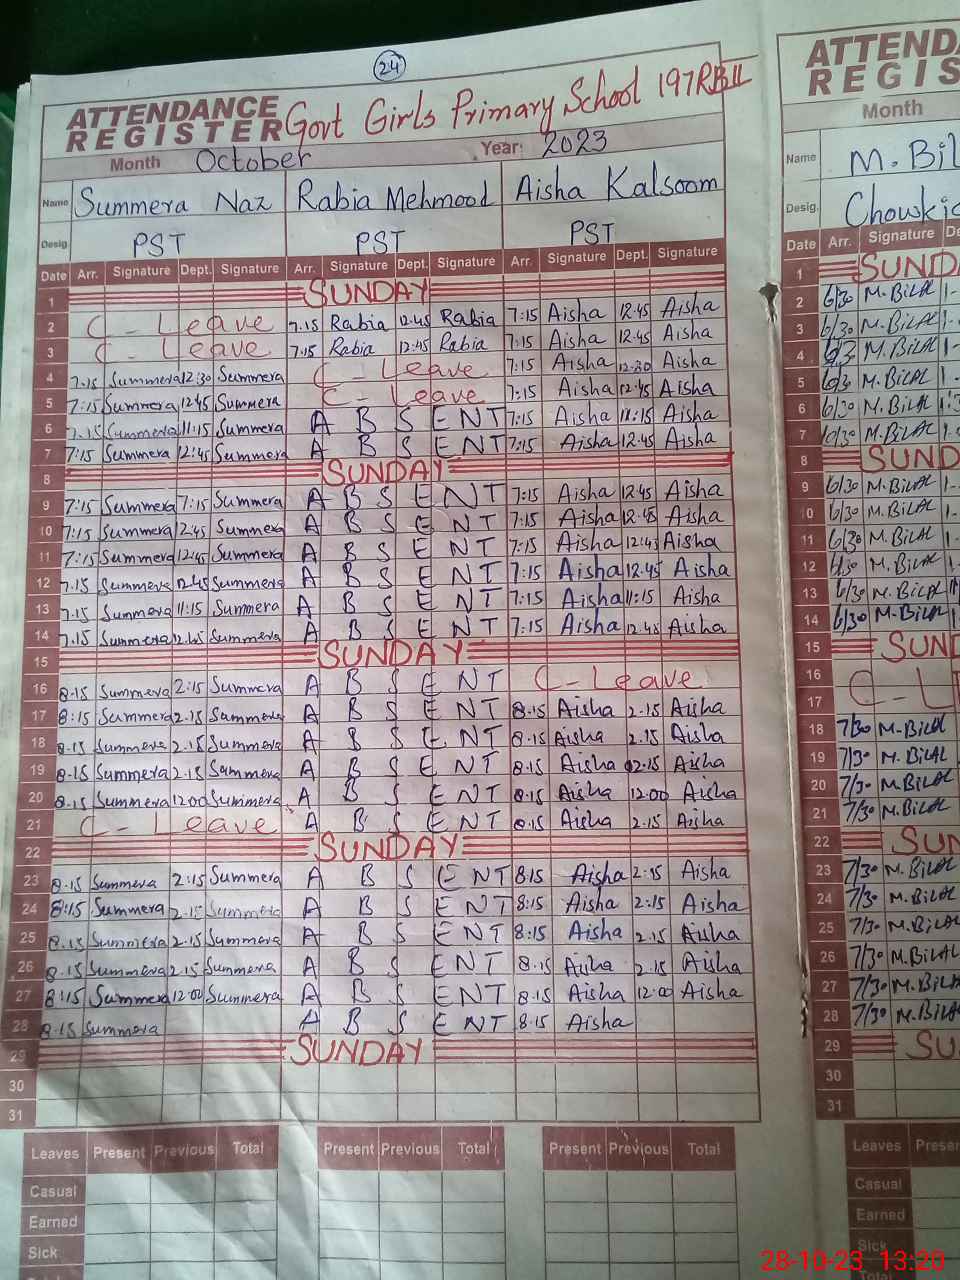 24
ATTENDANCE REGISTER Govt Girls Primary School 197RBII
Month October Year: 2023
Name Summera Naz Rabia Mehmood Aisha Kalsoom
Desig. PST PST PST
Date Arr. Signature Dept. Signature Arr. Signature Dept. Signature Arr. Signature Dept. Signature
1 SUNDAY
2 C - Leave 7.15 Rabia 12.45 Rabia 7:15 Aisha 12.45 Aisha
3 C - Leave 7.15 Rabia 12:45 Rabia 7:15 Aisha 12.45 Aisha
4 7.15 Summera 12:30 Summera C - Leave 7:15 Aisha 12.30 Aisha
5 7:15 Summera 12:45 Summera C - Leave 7:15 Aisha 12.45 Aisha
6 7.15 Summera 11:15 Summera A B S ENT 7:15 Aisha 11:15 Aisha
7 7:15 Summera 12:45 Summera A B S ENT 7:15 Aisha 12.45 Aisha
8 SUNDAY
9 7:15 Summera 7:15 Summera A B S E NT 7:15 Aisha 12.45 Aisha
10 7:15 Summera 12.45 Summera A B S E NT 7:15 Aisha 12.45 Aisha
11 7:15 Summera 12:45 Summera A B S E NT 7:15 Aisha 12:45 Aisha
12 7.15 Summera 12.45 Summera A B S E NT 7:15 Aisha 12.45 Aisha
13 7.15 Summera 11:15 Summera A B S E NT 7:15 Aisha 11:15 Aisha
14 7.15 Summera 12.45 Summera A B S E NT 7:15 Aisha 12.45 Aisha
15 SUNDAY
16 8.15 Summera 2:15 Summera A B S E NT C - Leave
17 8:15 Summera 2.15 Summera A B S E NT 8.15 Aisha 2.15 Aisha
18 8.15 Summera 2.15 Summera A B S E NT 8.15 Aisha 2.15 Aisha
19 8.15 Summera 2.15 Summera A B S E NT 8.15 Aisha 02.15 Aisha
20 8.15 Summera 12.00 Summera A B S E NT 8.15 Aisha 12.00 Aisha
21 C - Leave A B S E NT 8.15 Aisha 2.15 Aisha
22 SUNDAY
23 8.15 Summera 2:15 Summera A B S E NT 8:15 Aisha 2:15 Aisha
24 8:15 Summera 2.15 Summera A B S E NT 8:15 Aisha 2:15 Aisha
25 8.15 Summera 2.15 Summera A B S E NT 8:15 Aisha 2.15 Aisha
26 8.15 Summera 2.15 Summera A B S E NT 8.15 Aisha 2.15 Aisha
27 8:15 Summera 12:00 Summera A B S E NT 8.15 Aisha 12:00 Aisha
28 8.15 Summera A B S E NT 8.15 Aisha
29 SUNDAY
30
31
Leaves Present Previous Total Present Previous Total Present Previous Total
Casual
Earned
Sick
Month
Name M. Bil
Desig. Chowki
Date Arr. Signature
1 SUND
2 6/30 M. BiLAL 1-
3 6/30 M.BiLAL 1-
4 M.BiLAL 1-
5 M.BiLAL
6 6/30 M.BiLAL
7 M.BiLAL
8 SUND
9 6/30 M.BiLAL
10 6/30 M.BiLAL
11 6/30 M.BiLAL
12 M.BiLAL
13 6/30 M.BiLAL
14 6/30 M.BiLAL
15
16
17
18 7/30 M.BiLAL
19 7/30 M.BiLAL
20 7/30 M.BiLAL
21 7/30 M.BiLAL
22 SUN
23 7/30 M.BiLAL
24 7/30 M.BiLAL
25 7/30 M.BiLAL
26 7/30 M.BiLAL
27 7/30 M.BiLAL
28 7/30 M.BiLAL
29 SU
30
31
Leaves
Casual
Earned
Sick
28-10-23 13:20